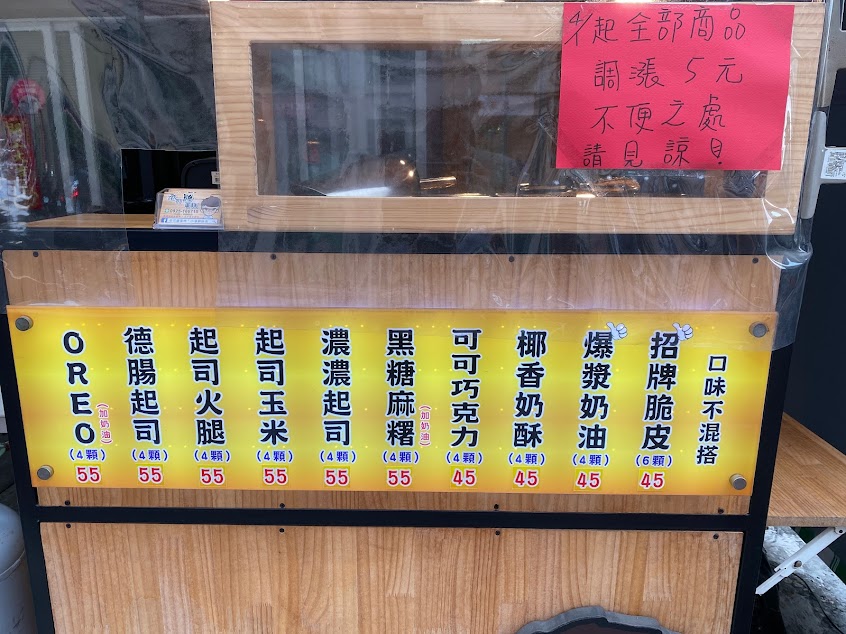 4/1起全部商品
調漲5元
不便之處
請見諒!
口味不混搭
招牌脆皮
(6顆)
45
爆漿奶油
(4顆)
45
椰香奶酥
(4顆)
45
可可巧克力
(4顆)
45
黑糖麻糬
(加奶油)
(4顆)
55
濃濃起司
(4顆)
55
起司玉米
(4顆)
55
起司火腿
(4顆)
55
德腸起司
(4顆)
55
OREO
(加奶油)
(4顆)
55